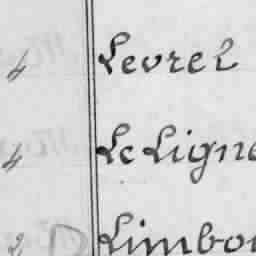 4 Levrel
4 Le Ligne
2 Limbou